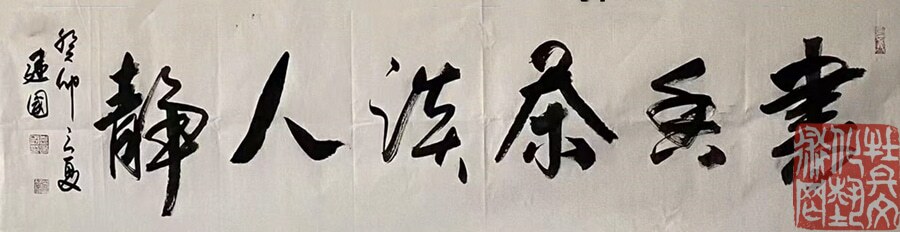 書香茶淡人静
癸卯之夏
建國